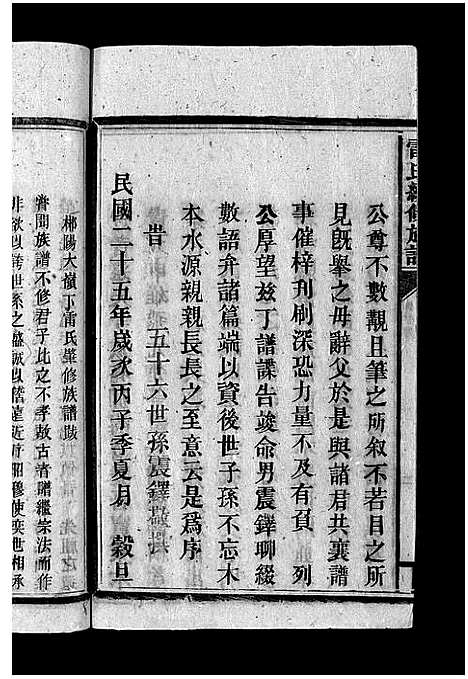 雷氏續修族譜
公尊不數觀且筆之所叙不若目之所
見既舉之毋辭父於是與諸君共襄譜
事催梓刋刷深恐力量不及有負 列
公厚望兹丁譜諜告竣命男震鐸聊綴
數語弁諸篇端以資後世子孫不忘木
本水源親親長長之至意云是爲序
昔
五十六世孫震鐸敬撰
民國二十五年歲次丙子季夏月 穀旦
郴陽大嶺下雷氏肇修族譜跋
嘗聞族譜不修君子比之不孝故古者譜繼宗法而作
非欲以誇世系之盛誠以稽遠近昭穆使奕世相承